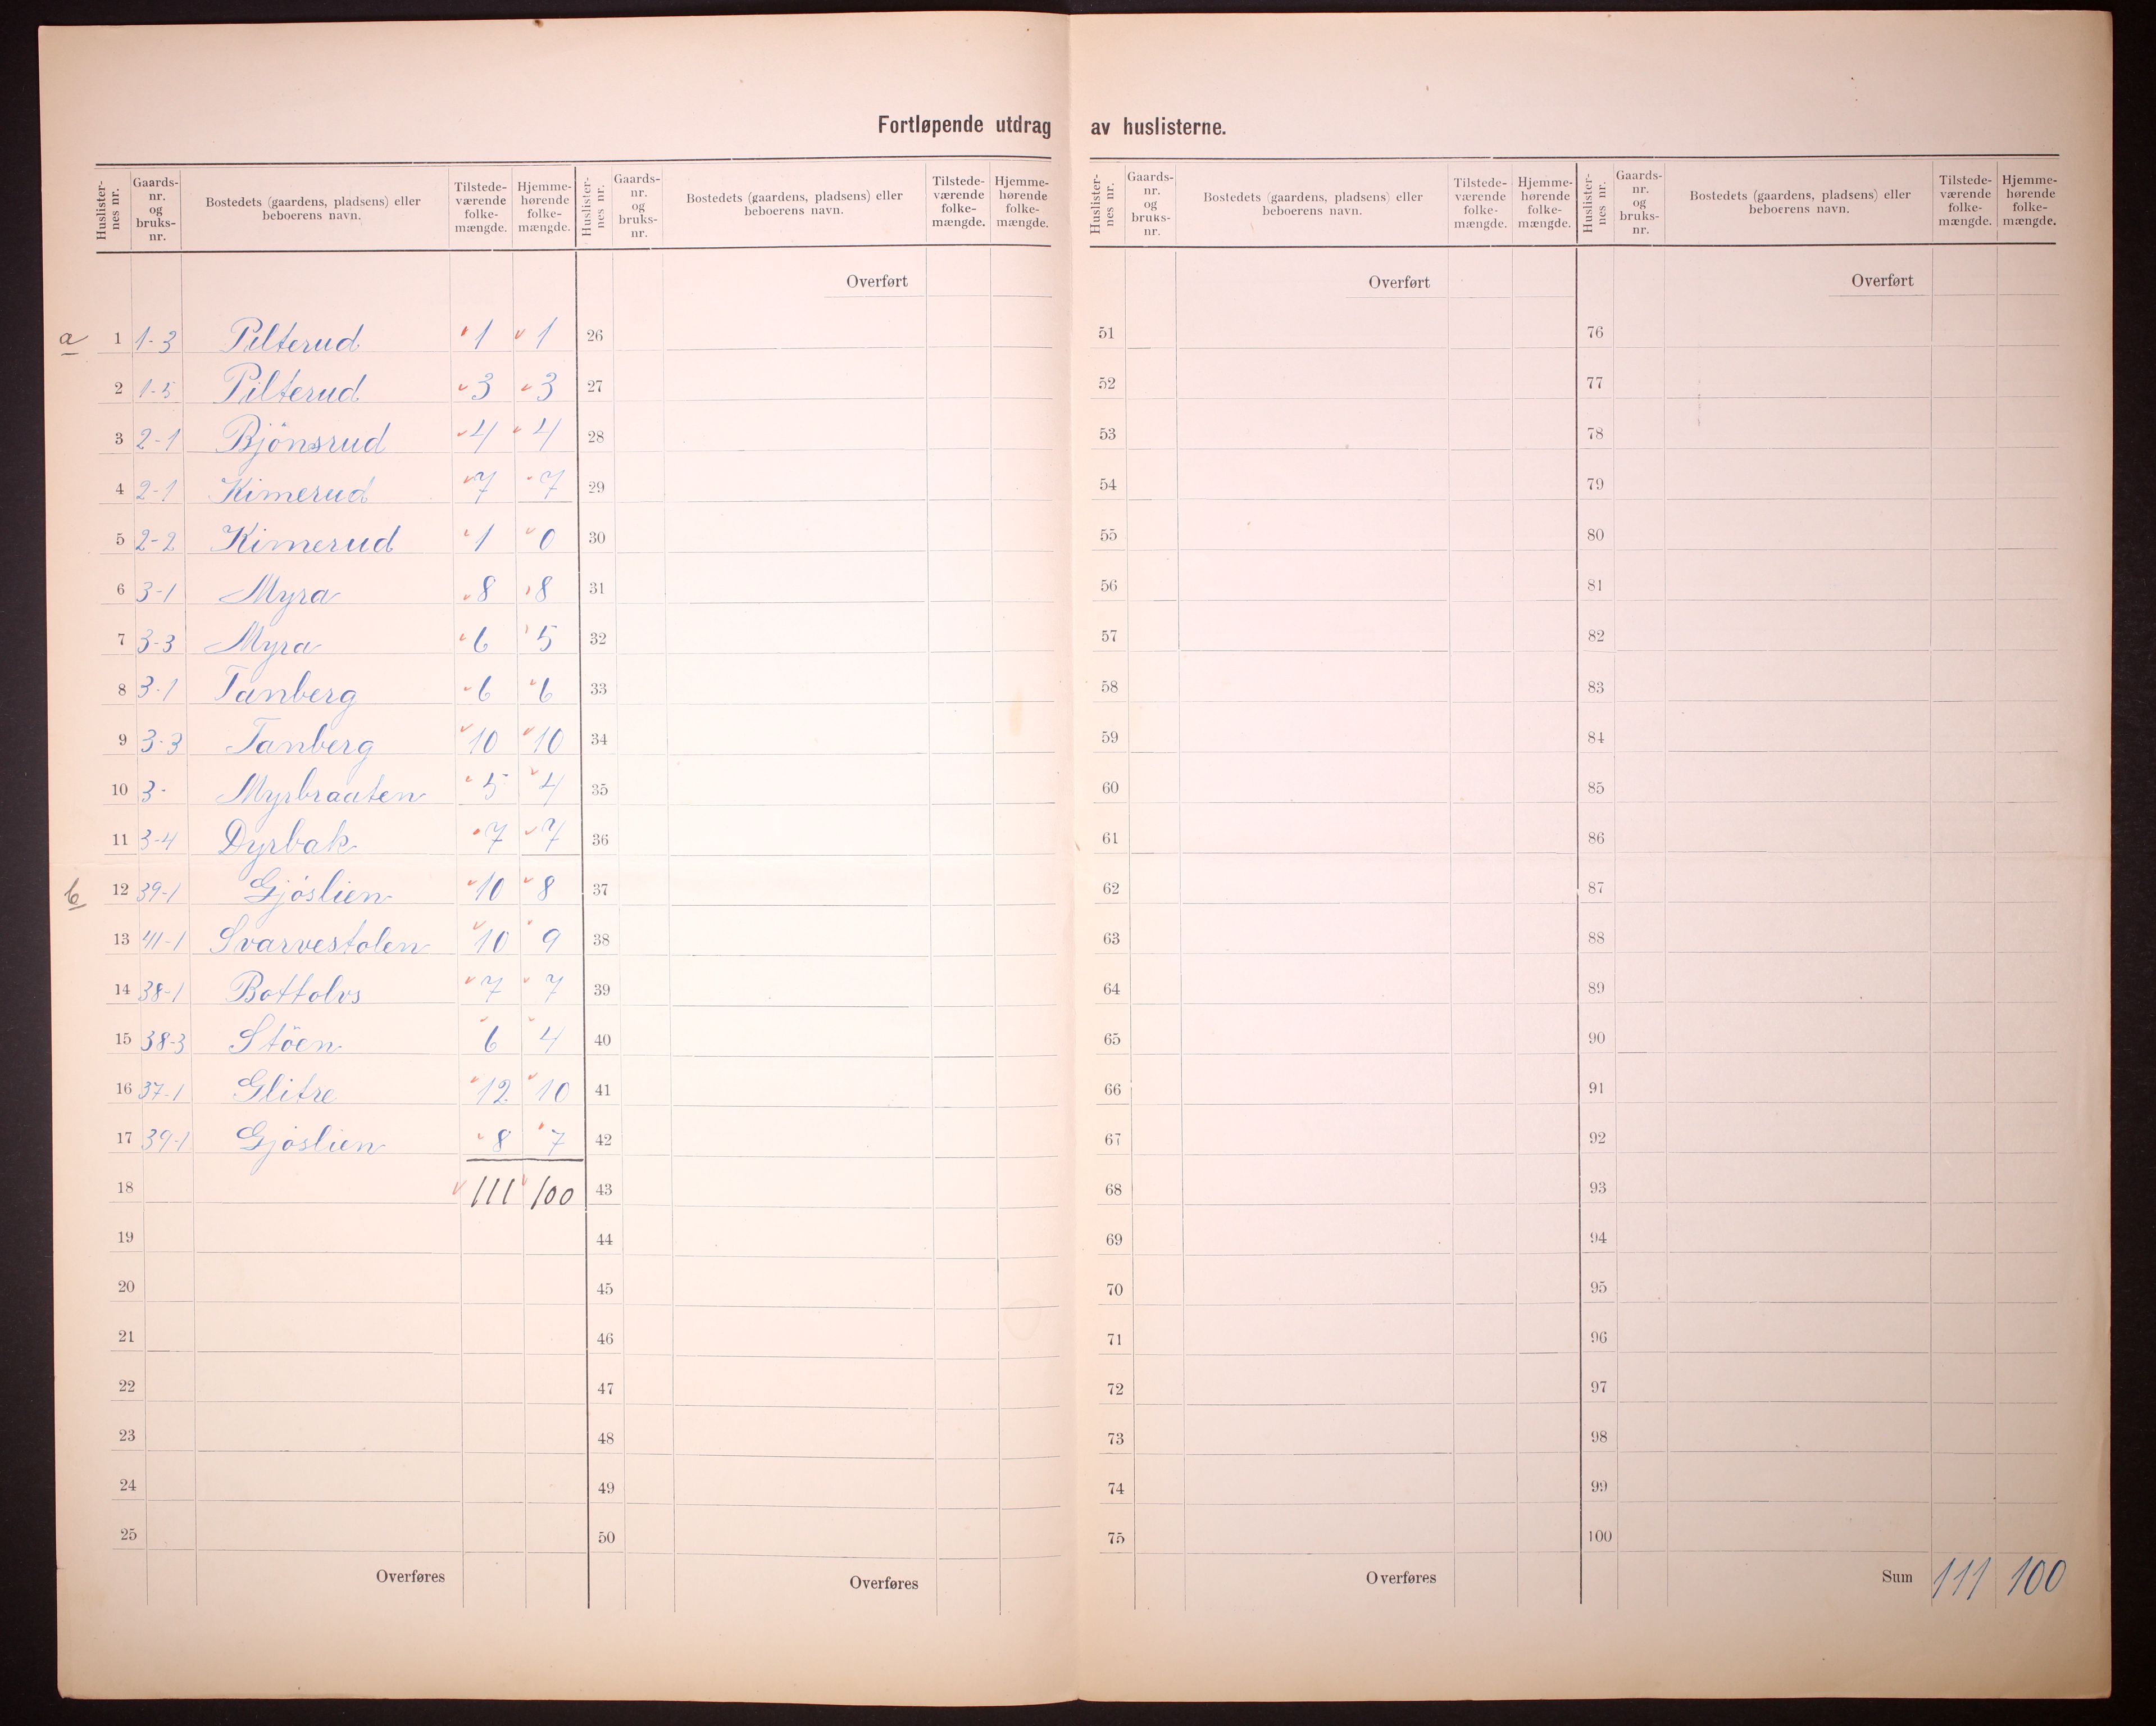 Fortløpende utdrag av huslisterne.
Huslister-nes nr. Gaards-nr. og bruks-nr. Bostedets (gaardens, pladsens) eller beboerens navn. Tilstede-værende folke-mængde. Hjemme-hørende folke-mængde.
a 1 1-3 Pilterud 1 1
2 1-5 Pilterud 3 3
3 2-1 Bjönsrud 4 4
4 2-1 Kimerud 7 7
5 2-2 Kimerud 1 0
6 3-1 Myra 8 8
7 3-3 Myra 6 5
8 3-1 Tanberg 6 6
9 3-3 Tanberg 10 10
10 3- Myrbraaten 5 4
11 3-4 Dyrbak 7 7
b 12 39-1 Gjöslien 10 8
13 41-1 Svarvestolen 10 9
14 38-1 Bottolvs 7 7
15 38-3 Stöen 6 4
16 37-1 Glitre 12 10
17 39-1 Gjöslien 8 7
18 111 100
19
20
21
22
23
24
25
Overføres
Huslister-nes nr. Gaards-nr. og bruks-nr. Bostedets (gaardens, pladsens) eller beboerens navn. Tilstede-værende folke-mængde. Hjemme-hørende folke-mængde.
Overført
26
27
28
29
30
31
32
33
34
35
36
37
38
39
40
41
42
43
44
45
46
47
48
49
50
Overføres
Huslister-nes nr. Gaards-nr. og bruks-nr. Bostedets (gaardens, pladsens) eller beboerens navn. Tilstede-værende folke-mængde. Hjemme-hørende folke-mængde.
Overført
51
52
53
54
55
56
57
58
59
60
61
62
63
64
65
66
67
68
69
70
71
72
73
74
75
Overføres
Huslister-nes nr. Gaards-nr. og bruks-nr. Bostedets (gaardens, pladsens) eller beboerens navn. Tilstede-værende folke-mængde. Hjemme-hørende folke-mængde.
Overført
76
77
78
79
80
81
82
83
84
85
86
87
88
89
90
91
92
93
94
95
96
97
98
99
100
Sum 111 100